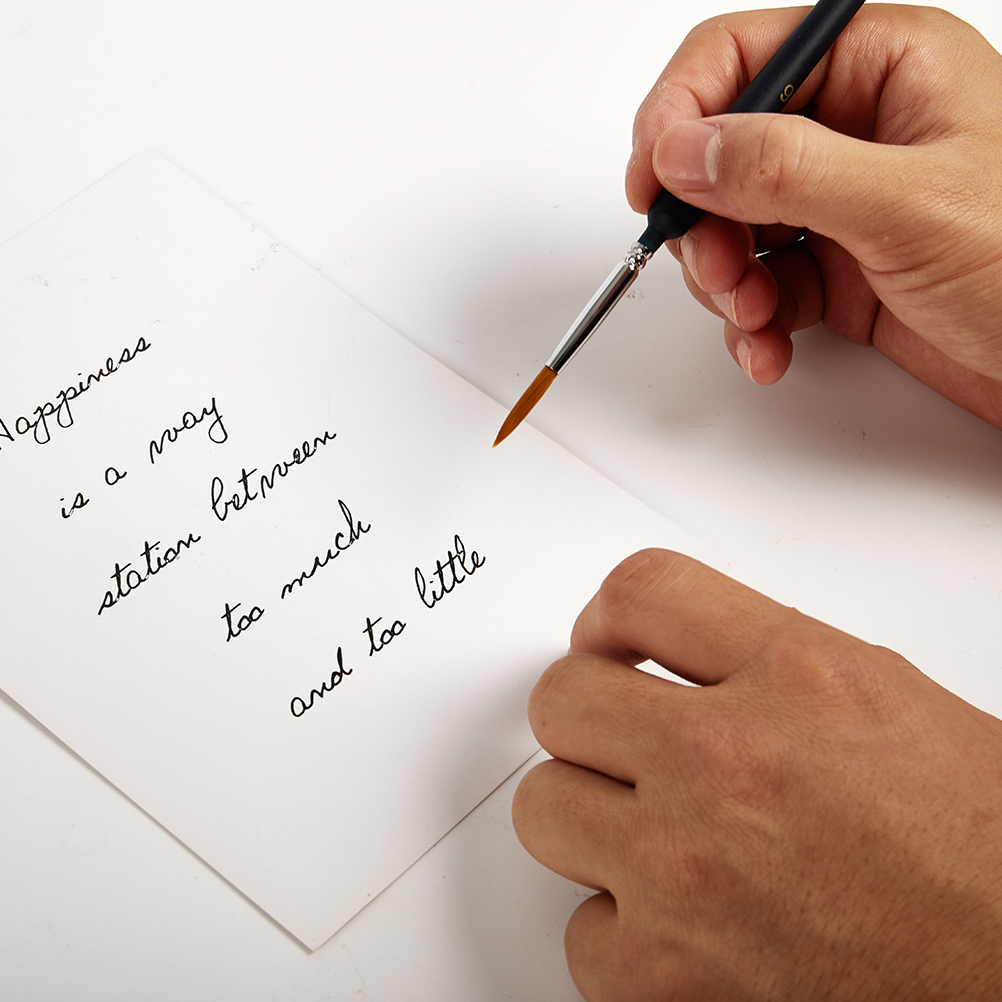 Happiness
is a way
station between
too much
and too little
6